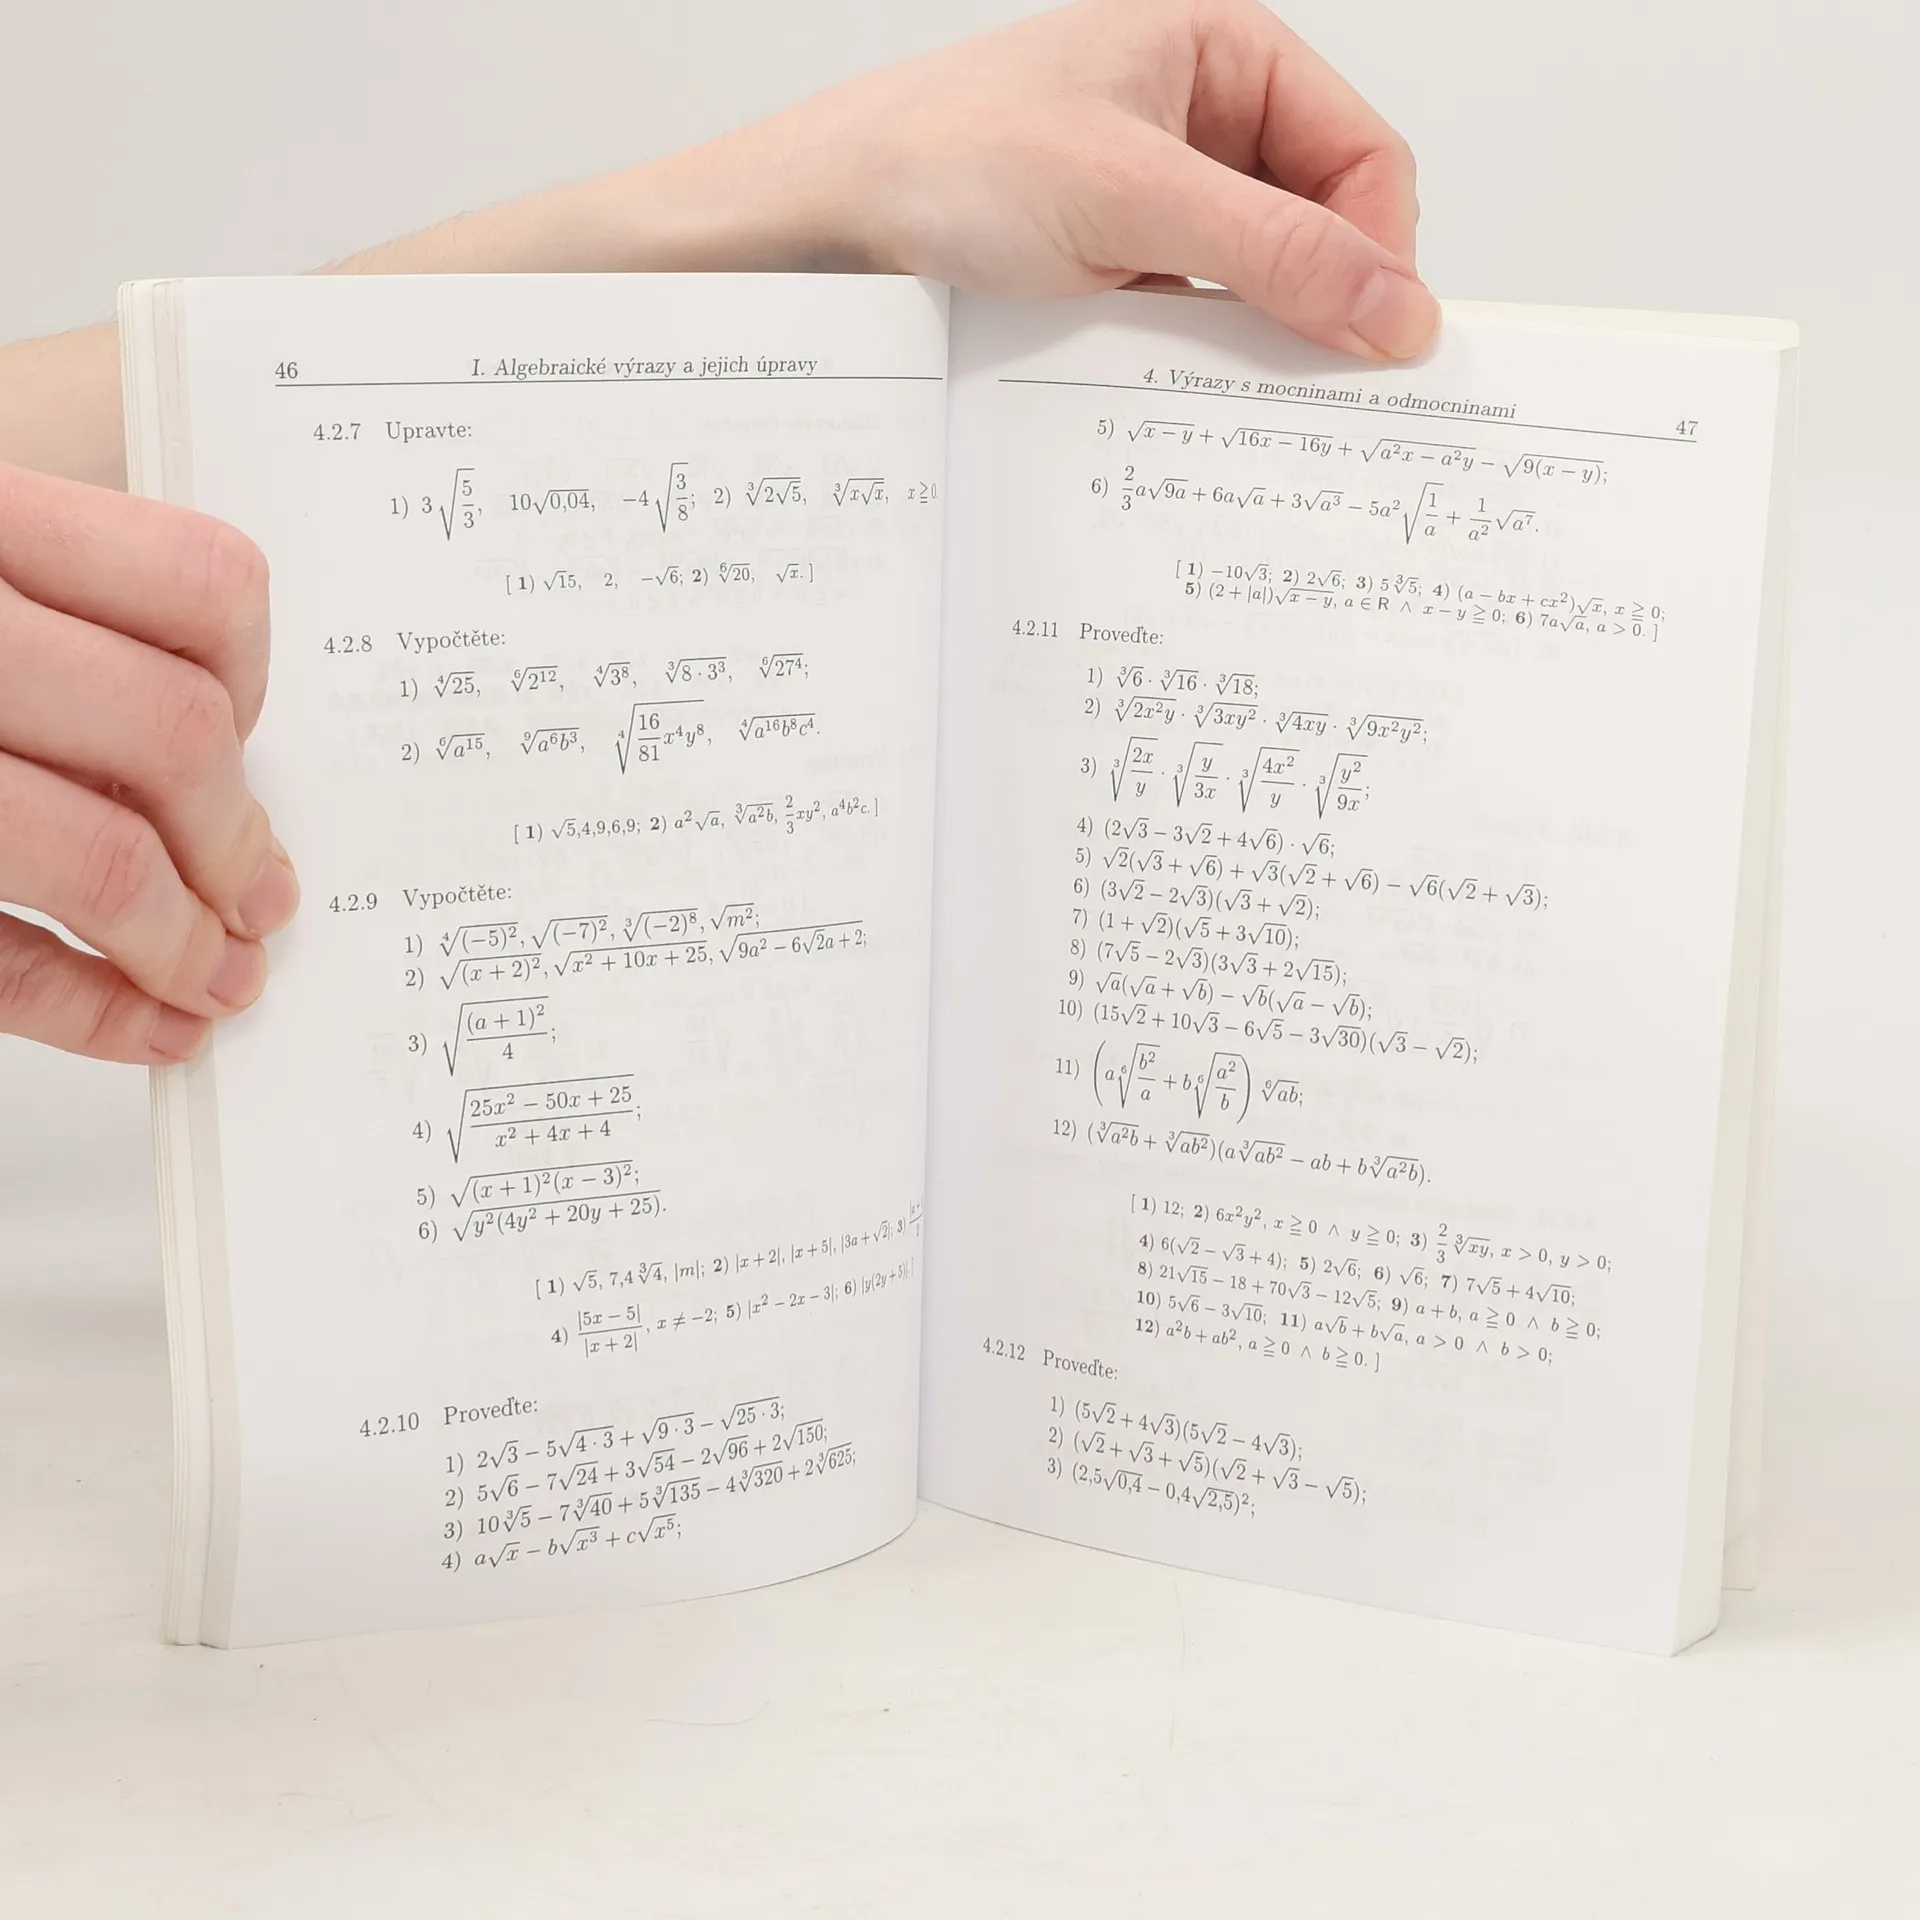 46 I. Algebraické výrazy a jejich úpravy
4.2.7 Upravte:
1) 3√(5/3), 10√0,04, −4√(3/8); 2) ∛(2√5), ∛(x√x), x ≧ 0.
[ 1) √15, 2, −√6; 2) ⁶√20, √x. ]
4.2.8 Vypočtěte:
1) ⁴√25, ⁶√(2¹²), ⁴√(3⁸), ∛(8 · 3³), ⁶√(27⁴);
2) ⁶√(a¹⁵), ⁹√(a⁶b³), ⁴√((16/81)x⁴y⁸), ⁴√(a¹⁶b⁸c⁴).
[ 1) √5,4,9,6,9; 2) a²√a, ∛(a²b), (2/3)xy², a⁴b²c. ]
4.2.9 Vypočtěte:
1) ⁴√((−5)²), √((−7)²), ∛((−2)⁸), √(m²);
2) √((x + 2)²), √(x² + 10x + 25), √(9a² − 6√2a + 2);
3) √((a + 1)²/4);
4) √((25x² − 50x + 25)/(x² + 4x + 4));
5) √((x + 1)²(x − 3)²);
6) √(y²(4y² + 20y + 25)).
[ 1) √5, 7,4∛4, |m|; 2) |x + 2|, |x + 5|, |3a + √2|; 3)
4) |5x − 5|/|x + 2|, x ≠ −2; 5) |x² − 2x − 3|; 6) |y(2y + 5)|. ]
4.2.10 Proveďte:
1) 2√3 − 5√(4 · 3) + √(9 · 3) − √(25 · 3);
2) 5√6 − 7√24 + 3√54 − 2√96 + 2√150;
3) 10∛5 − 7∛40 + 5∛135 − 4∛320 + 2∛625;
4) a√x − b√(x³) + c√(x⁵);
4. Výrazy s mocninami a odmocninami 47
5) √(x − y) + √(16x − 16y) + √(a²x − a²y) − √(9(x − y));
6) (2/3)a√(9a) + 6a√a + 3√(a³) − 5a²√(1/a) + (1/a²)√(a⁷).
[ 1) −10√3; 2) 2√6; 3) 5∛5; 4) (a − bx + cx²)√x, x ≧ 0;
5) (2 + |a|)√(x − y), a ∈ R ∧ x − y ≧ 0; 6) 7a√a, a > 0. ]
4.2.11 Proveďte:
1) ∛6 · ∛16 · ∛18;
2) ∛(2x²y) · ∛(3xy²) · ∛(4xy) · ∛(9x²y²);
3) ∛(2x/y) · ∛(y/3x) · ∛(4x²/y) · ∛(y²/9x);
4) (2√3 − 3√2 + 4√6) · √6;
5) √2(√3 + √6) + √3(√2 + √6) − √6(√2 + √3);
6) (3√2 − 2√3)(√3 + √2);
7) (1 + √2)(√5 + 3√10);
8) (7√5 − 2√3)(3√3 + 2√15);
9) √a(√a + √b) − √b(√a − √b);
10) (15√2 + 10√3 − 6√5 − 3√30)(√3 − √2);
11) (a⁶√(b²/a) + b⁶√(a²/b)) ⁶√(ab);
12) (∛(a²b) + ∛(ab²))(a∛(ab²) − ab + b∛(a²b)).
[ 1) 12; 2) 6x²y², x ≧ 0 ∧ y ≧ 0; 3) (2/3)∛(xy), x > 0, y > 0;
4) 6(√2 − √3 + 4); 5) 2√6; 6) √6; 7) 7√5 + 4√10;
8) 21√15 − 18 + 70√3 − 12√5; 9) a + b, a ≧ 0 ∧ b ≧ 0;
10) 5√6 − 3√10; 11) a√b + b√a, a > 0 ∧ b > 0;
12) a²b + ab², a ≧ 0 ∧ b ≧ 0. ]
4.2.12 Proveďte:
1) (5√2 + 4√3)(5√2 − 4√3);
2) (√2 + √3 + √5)(√2 + √3 − √5);
3) (2,5√0,4 − 0,4√2,5)²;